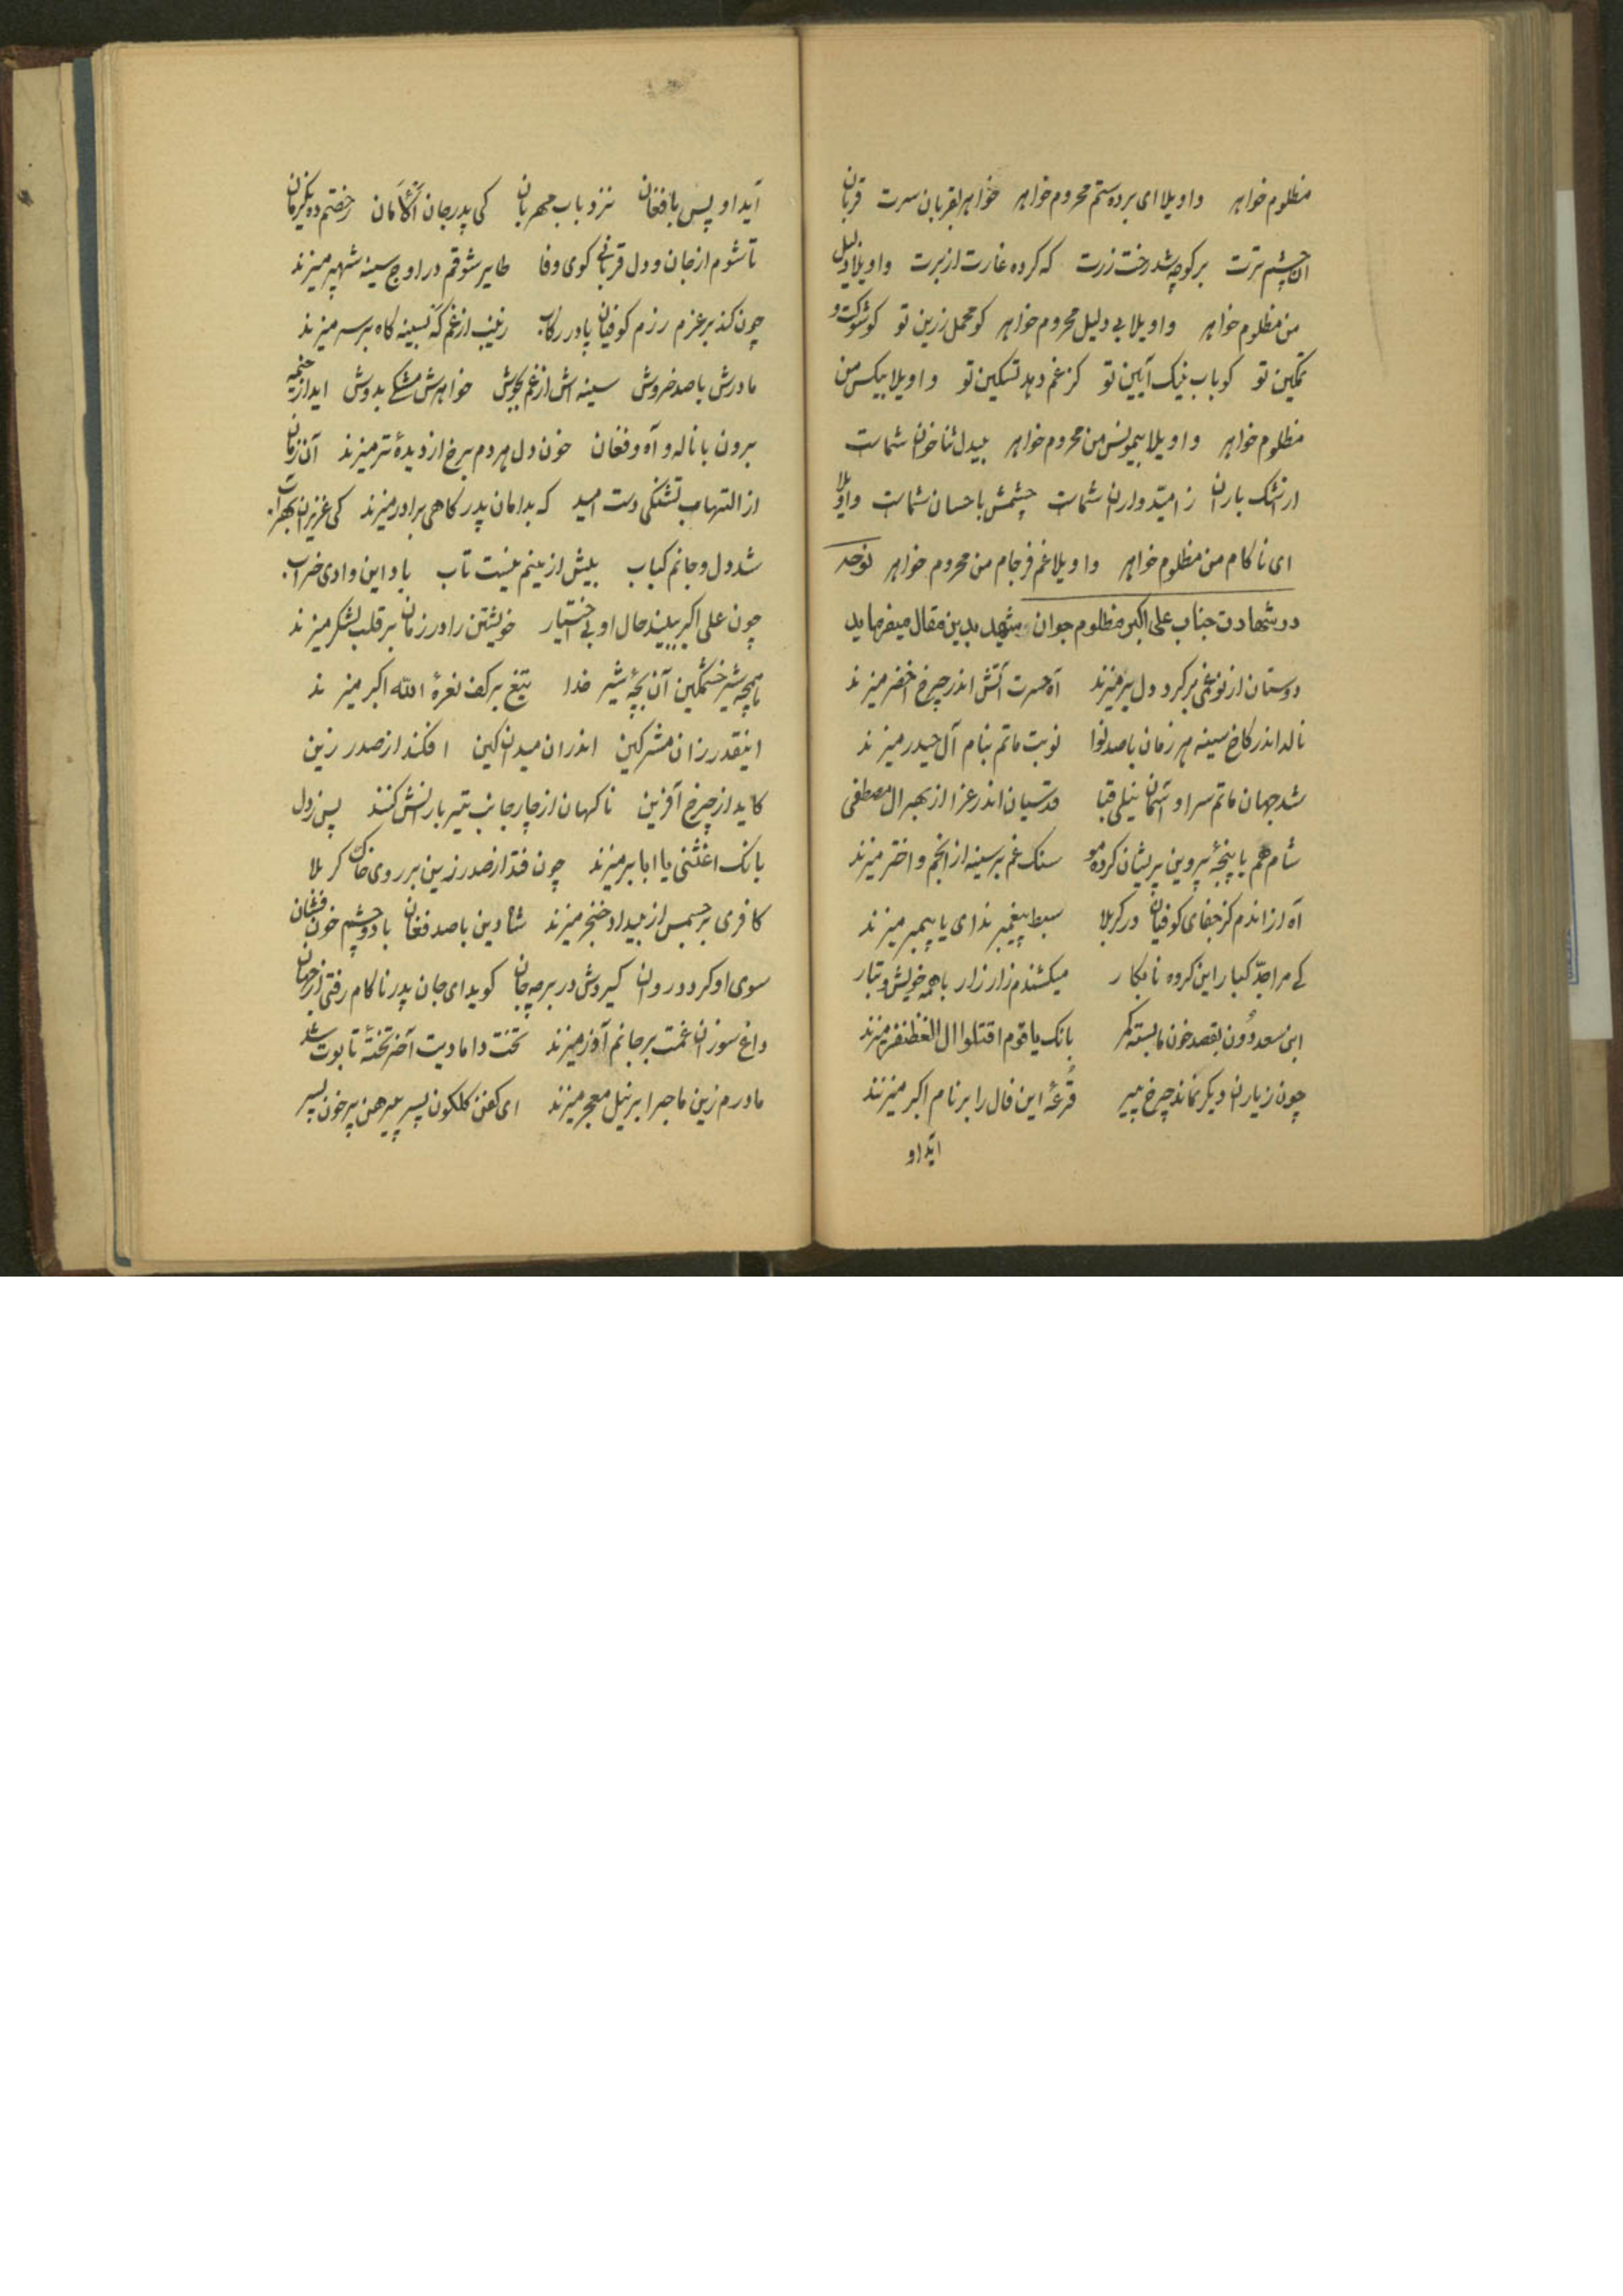 مظلوم خواهر واویلا ای برده ستم محروم خواهر خواهر بقربان سرت قربان
ان چشم ترت برکوچه شد رخت زرت که کرده غارت از برت واویلا دلیل
من مظلوم خواهر واویلا بی دلیل محروم خواهر کو محمل زرین تو کو شوکت و
تمکین تو کو باب نیک آیین تو کز غم دهد تسکین تو واویلا بیکس من
مظلوم خواهر واویلا بیمونس من محروم خواهر بیدل ثنا خوان شماست
از اشک باران ز امیدواران شماست چشمش باحسان شماست واویلا
ای ناکام من مظلوم خواهر واویلا غم فرجام من محروم خواهر نوحه
در شهادت جناب علی اکبر مظلوم جوان شهید بدین مقال میفرماید
دوستان از نو غمی بر کرد دل پر میزند آه حسرت آتش اندر چرخ اخضر میزند
ناله اندر کاخ سینه هر زمان با صد نوا نوبت ماتم بنام آل حیدر میزند
شد جهان ماتم سرا و آسمان نیلی قبا قدسیان اندر عزا از بهر ال مصطفی
شام هم با پنجۀ پروین پریشان کرده مو سنک غم بر سینه از انجم و اختر میزند
آه از اندم کز جفای کوفیان در کربلا سبط پیغمبر ندای یا پیمبر میزند
کی مرا جدّ کبار این کروه نابکار میکشندم زار زار با همه خویش و تبار
ابن سعد دون بقصد خون ما بسته کمر بانک یا قوم اقتلوا ال الغظنفر میزند
چون ز یاران دیکر نماند چرخ پیر قرعه این فال را بر نام اکبر میزند
آید او
آید او پس با فغان نزد باب مهربان کی پدر جان آلامان رخصتم ده یکزمان
تا شوم از جان و دل قربانی کوی وفا طایر شوقم در اوج سینه شهپر میزند
چون کند بر عزم رزم کوفیان پا در رکاب زینب از غم که بسینه کاه بر سر میزند
مادرش با صد خروش سینه اش از غم بجوش خواهرش مشکی بدوش اید از خیمه
برون با ناله و آه و فغان خون دل هر دم برخ از دیدۀ تر میزند آن زمان
از التهاب تشنکی دست امید که بدامان پدر کاهی برادر میزند کی عزیزان بهر آب
شد دل و جانم کباب بیش از ینم نیست تاب باد این وادی خراب
چون علی اکبر ببیند حال او بی اختیار خویشتن را در زمان بر قلب لشکر میزند
همچه شیر خشمکین آن بچۀ شیر خدا تیغ بر کف نعرۀ الله اکبر میزند
اینقدر زان مشرکین اندران میدان کین افکند از صدر زین
کاید از چرخ آفرین ناکهان از چار جانب تیر بارانش کنند پس ز دل
بانک اغثنی یا ابا بر میزند چون فتد از صدر زین بر روی خاک کربلا
کافری بر جسمس از بیداد خنجر میزند شاه دین با صد فغان با دو چشم خون فشان
سوی او کردد روان کیردش در بر چه جان کوید ای جان پدر ناکام رفتی از جهان
داغ سوزان غمت بر جانم آذر میزند تخت دامادیت آخر تختۀ تابوت شد
مادرم زین ماجرا بر نیل معجر میزند ای کفن کلکون پسر پیرهن پر خون پسر